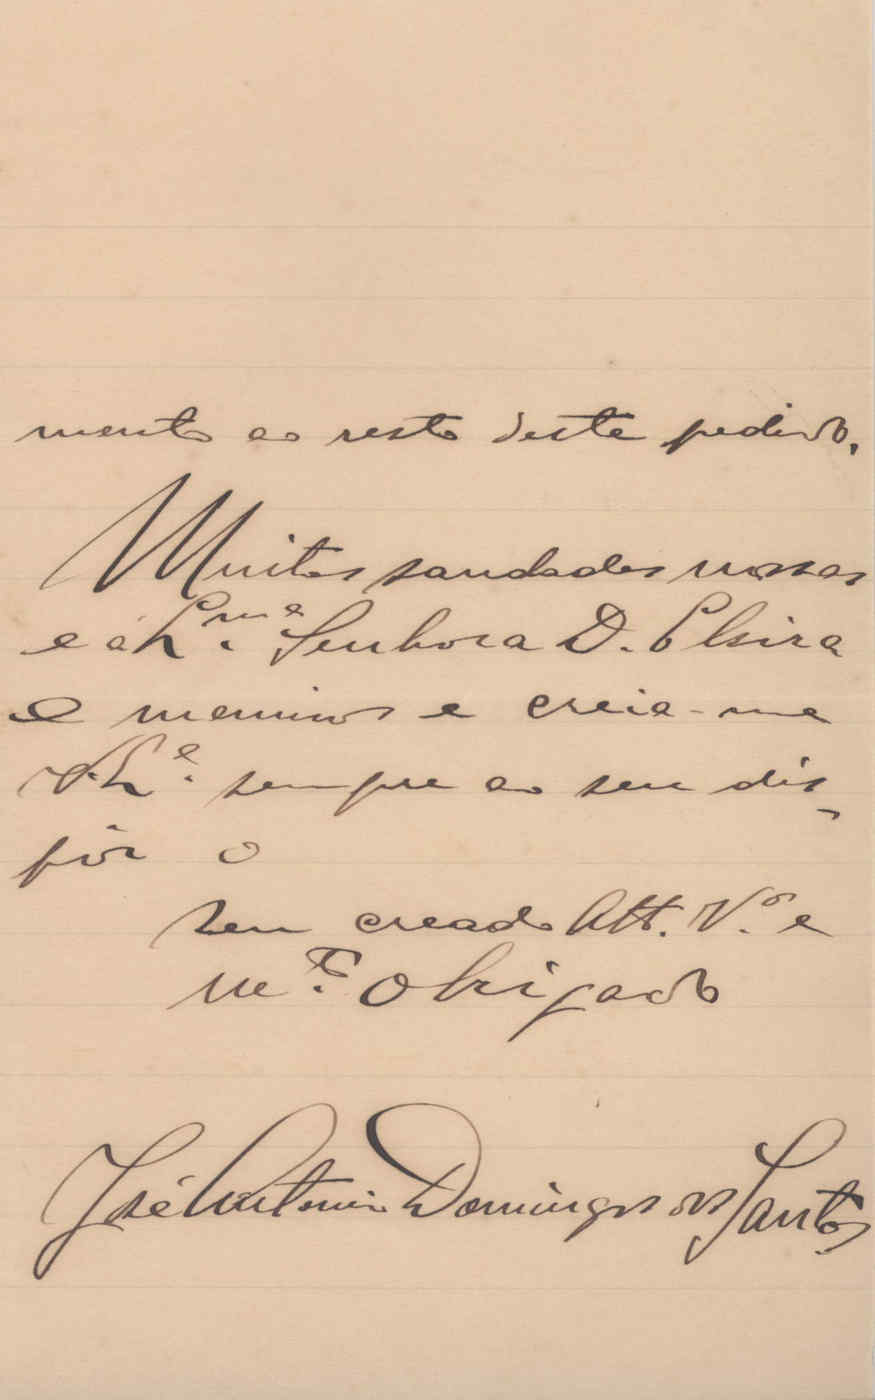 mento ao resto deste pedido.
Muitas saudades nossas
e á Exma. Senhora D. Elvira
e meninos e creia-me
V. Exa. sempre ao seu dis-
pôr o
seu creado Att. Vor e
mto. Obrigado
José Antonio Domingos dos Santos